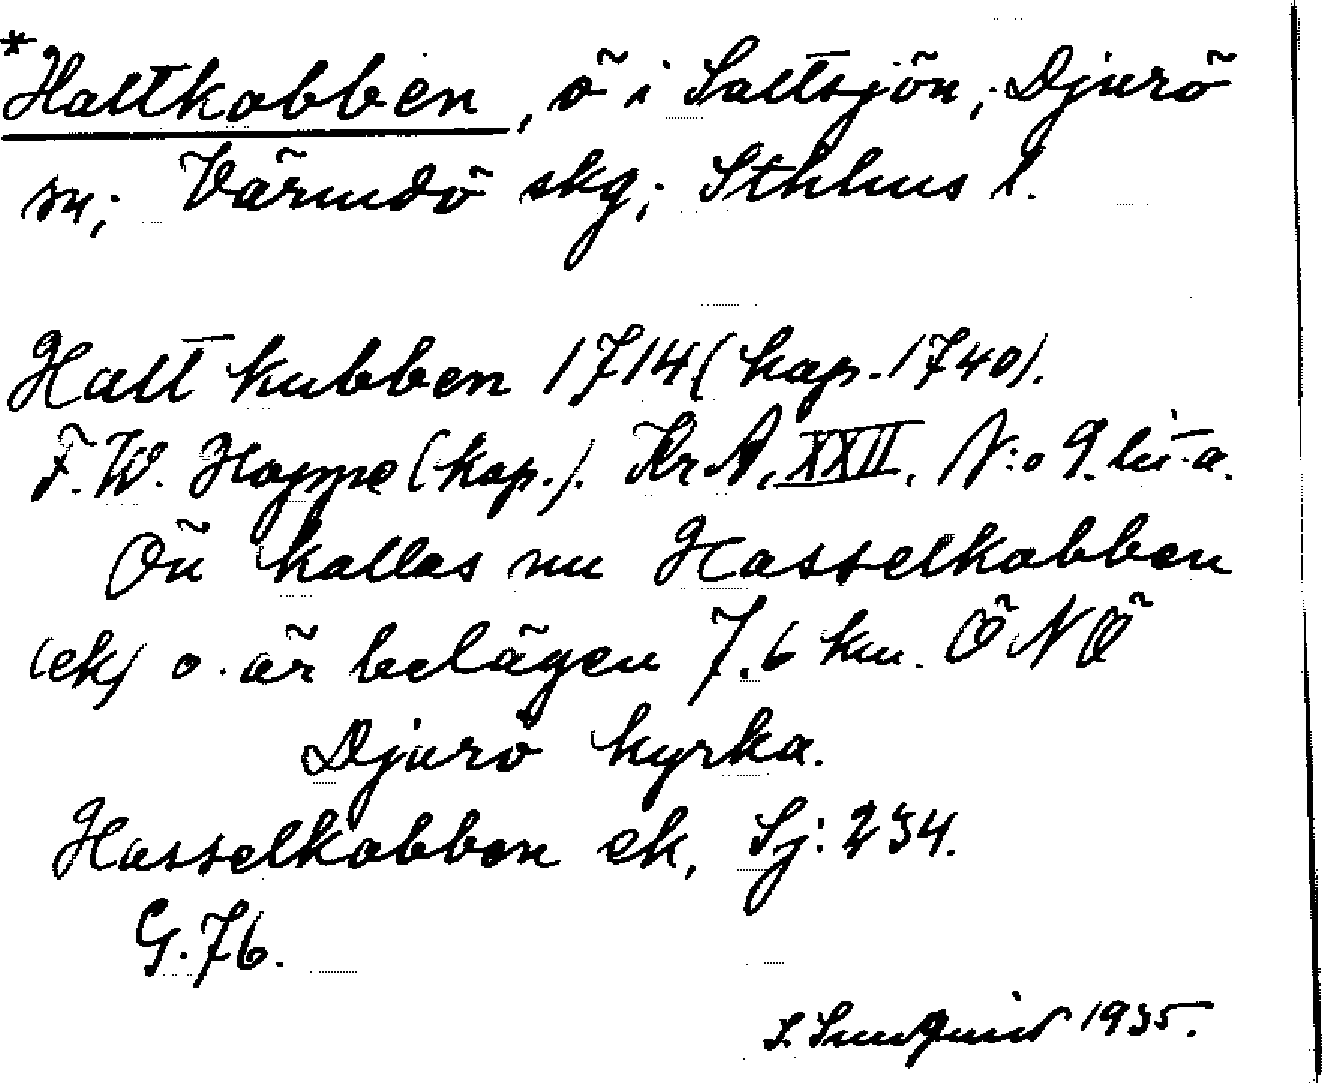 *Hattkobben, ö i Saltsjön; Djurö
sn; Värmdö skg; Sthlms l.
Hatt kubben 1714 (kop. 1740).
F. W. Hoppe (kop.). Kr. A. XXII. N:o 9. lit a.
Ön kallas nu Hasselkobben
(ek) o. är belägen 7.6 km. ÖNÖ
Djurö kyrka.
Hasselkobben ek, Sj: 234.
G. 76.
S. Sundquist 1935.